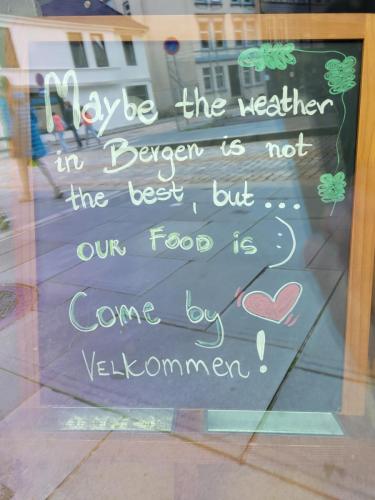 Maybe the weather
in Bergen is not
the best, but...
OUR FOOD is :)
Come by
VELKOMMEN!